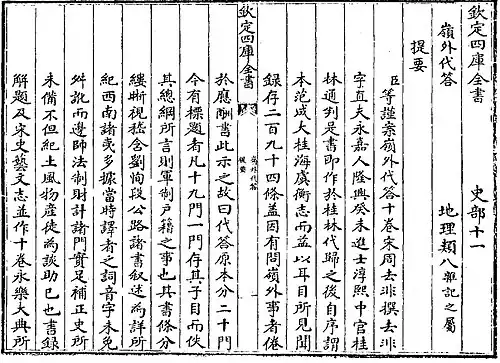 欽定四庫全書 史部十一
嶺外代答 地理類八雜記之屬
提要
臣等謹案嶺外代答十卷宋周去非撰去非
字直夫永嘉人隆興癸未進士淳熙中官桂
林通判是書即作於桂林代歸之後自序謂
本范成大桂海虞衡志而益以耳目所見聞
録存二百九十四條蓋因有問嶺外事者倦
欽定四庫全書
嶺外代答
提要
於應酬書此示之故曰代答原本分二十門
今有標題者凡十九門一門存其子目而佚
其總綱所言則軍制户籍之事也其書條分
縷晰視嵇含劉恂段公路諸書叙述為詳所
紀西南諸夷多據當時譯者之詞音字未免
舛訛而邊帥法制財計諸門實足補正史所
未備不但紀土風物産徒為談助已也書録
解題及宋史藝文志並作十卷永樂大典所